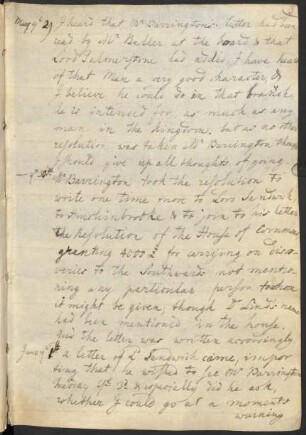 May 29 I heard that Mr Barrington's letter had been
read by Mr Beller at the board & that
Lord Palmerstone had added, I have heard
of that Man a very good character, &
I believe he could do in that branch
he is intended for as much as any
man in the Kingdom, but as no other
resolution was taken Mr Barrington thought
I should give up all thoughts of going.
Mr Barrington took the resolution to
write one time more to Lord Sandwich
to & to join to his letter
the Resolution of the House of Commons
granting 4000 £ for carrying on Disco-
veries to the Southwards not mentio-
ning any particular person to whom
it might be given, though Dr Lind's name
had been mentioned in the house.
And the letter was written accordingly
June a letter of Ld Sandwich came, impor-
ting that he wished to see Mr Barrington
friday & especially did he ask,
whether I could go at a moments
warning